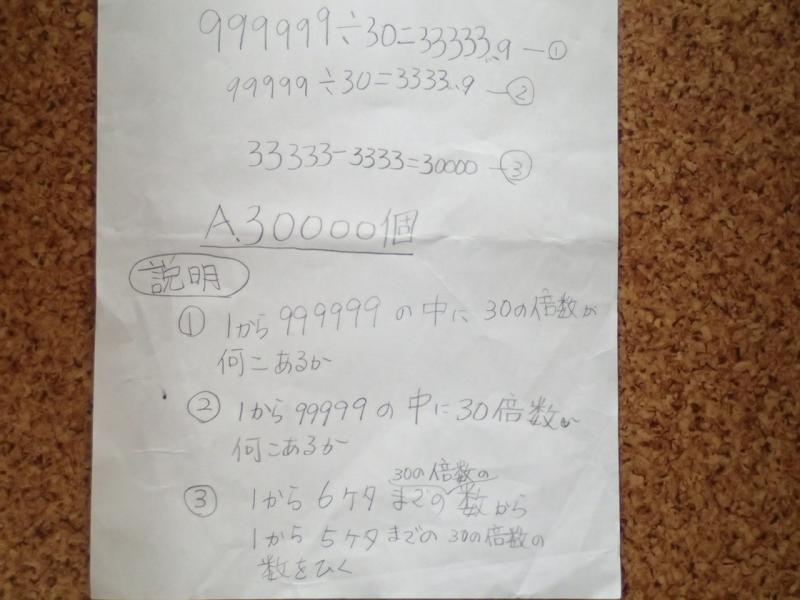 999999÷30=33333…9 ―①
99999÷30=3333…9 ―②
33333-3333=30000 ―③
A.30000個
説明
① 1から999999の中に30の倍数が
何こあるか
② 1から99999の中に30倍数が
何こあるか
30の倍数の
③ 1から6ケタまでの数から
1から5ケタまでの30の倍数の
数をひく